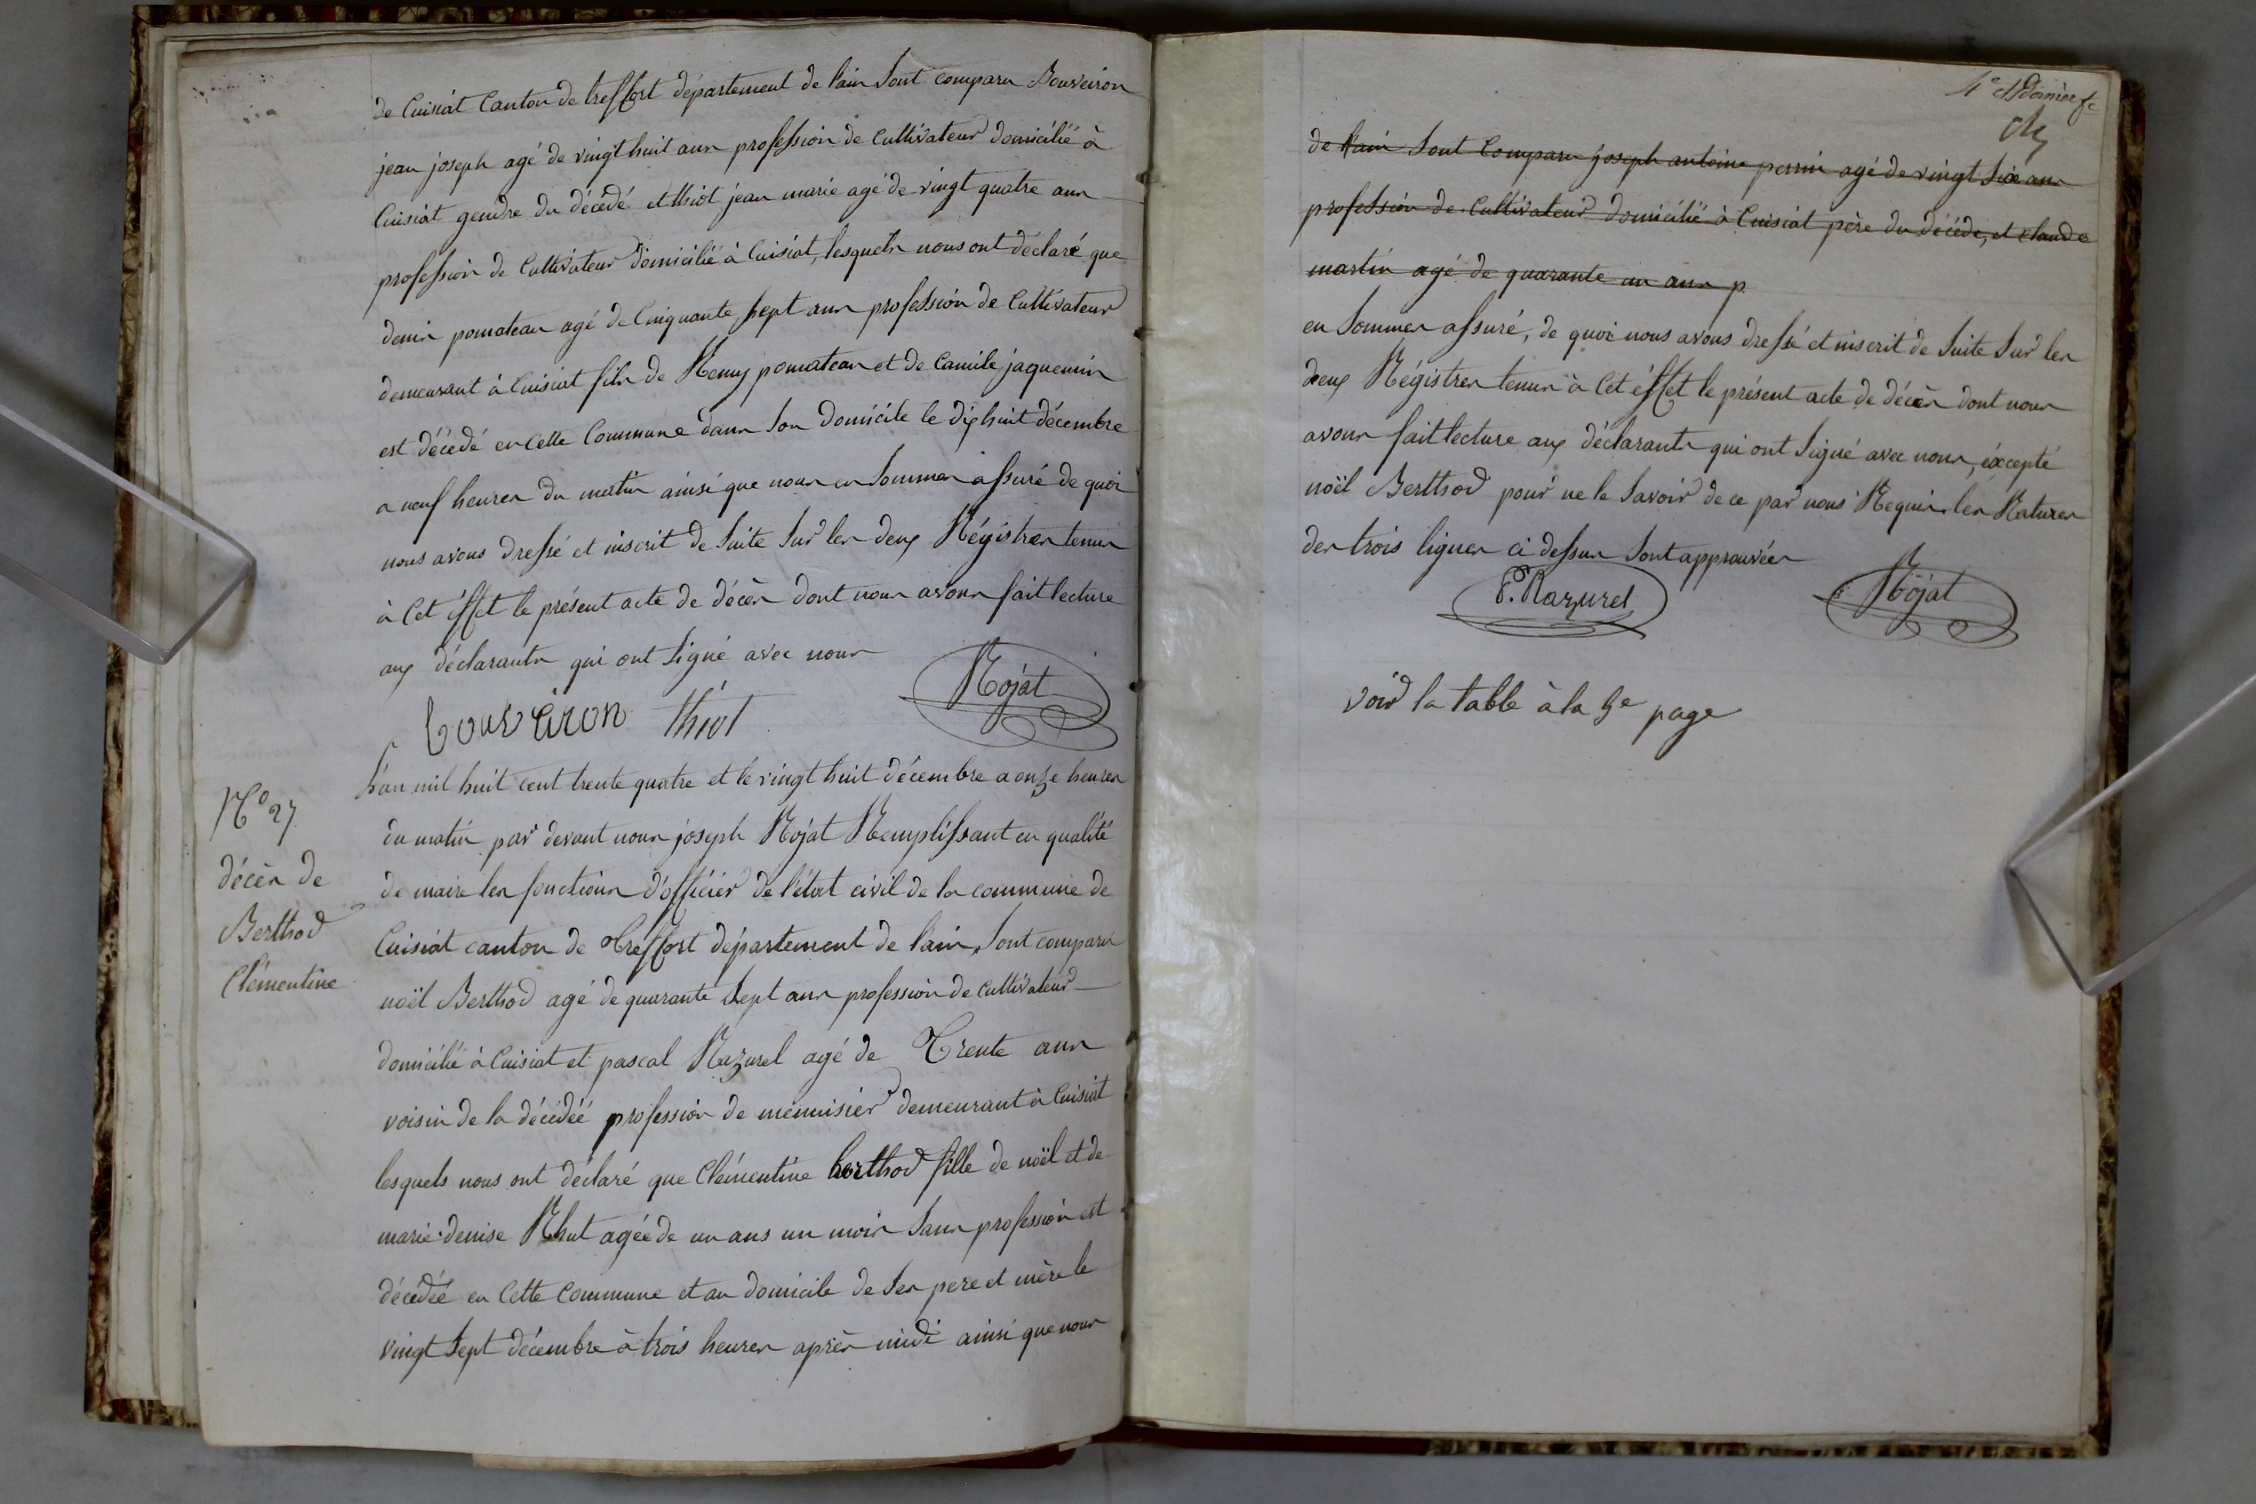 de Cuisiat Canton de treffort département de l'ain Sont comparu Bouveiron
jean joseph agé de vingt huit ans profession de Cultivateur domicilié à
Cuisiat gendre du décédé et thiot jean marie agé de vingt quatre ans
profession de Cultivateur domicilié à Cuisiat, lesquels nous ont déclaré que
denis pomateau agé de Cinquante sept ans profession de Cultivateur
demeurant à Cuisiat fils de Remy pomateau et de Camile jaquemin
est décédé en cette Commune dans Son domicile le dix huit décembre
a neuf heures du matin ainsi que nous en Sommes assuré de quoi
nous avons dressé et inscrit de Suite Sur les deux Régistres tenus
à Cet éffet le présent acte de décès dont nous avons fait lecture
aux déclarants qui ont Signé avec nous
bouveiron thiot Rojat
N° 27
décès de
Berthod
Clémentine
L'an mil huit cent trente quatre et le vingt huit décembre a onze heures
du matin par devant nous joseph Rojat Remplissant en qualité
de maire les fonctions d'officier de l'état civil de la commune de
Cuisiat canton de treffort département de l'ain, Sont comparus
noël Berthod agé de quarante Sept ans profession de cultivateur
domicilié à Cuisiat et pascal Razurel agé de Trente ans
voisin de la décédée profession de menuisier demeurant à Cuisiat
lesquels nous ont déclaré que Clémentine berthod fille de noël et de
marie denise Rhut agée de un ans un mois Sans profession est
décédée en Cette Commune et au domicile de Ses pere et mère le
vingt Sept décembre à trois heures après midi ainsi que nous
4e et dernier f.
de l'ain Sont Comparu joseph antoine perrin agé de vingt Six ans
profession de Cultivateur domicilié à Cuisiat père du décédé, et claude
martin agé de quarante un ans p
en Sommes assuré, de quoi nous avons dressé et inscrit de Suite Sur les
deux Régistres tenus à Cet éffet le présent acte de décès dont nous
avons fait lecture aux déclarants qui ont Signé avec nous, éxcepté
noël Berthod pour ne le Savoir de ce par nous Requis les Ratures
des trois lignes ci dessus Sont approuvées
P. Razurel Rojat
voir la table à la 5e page